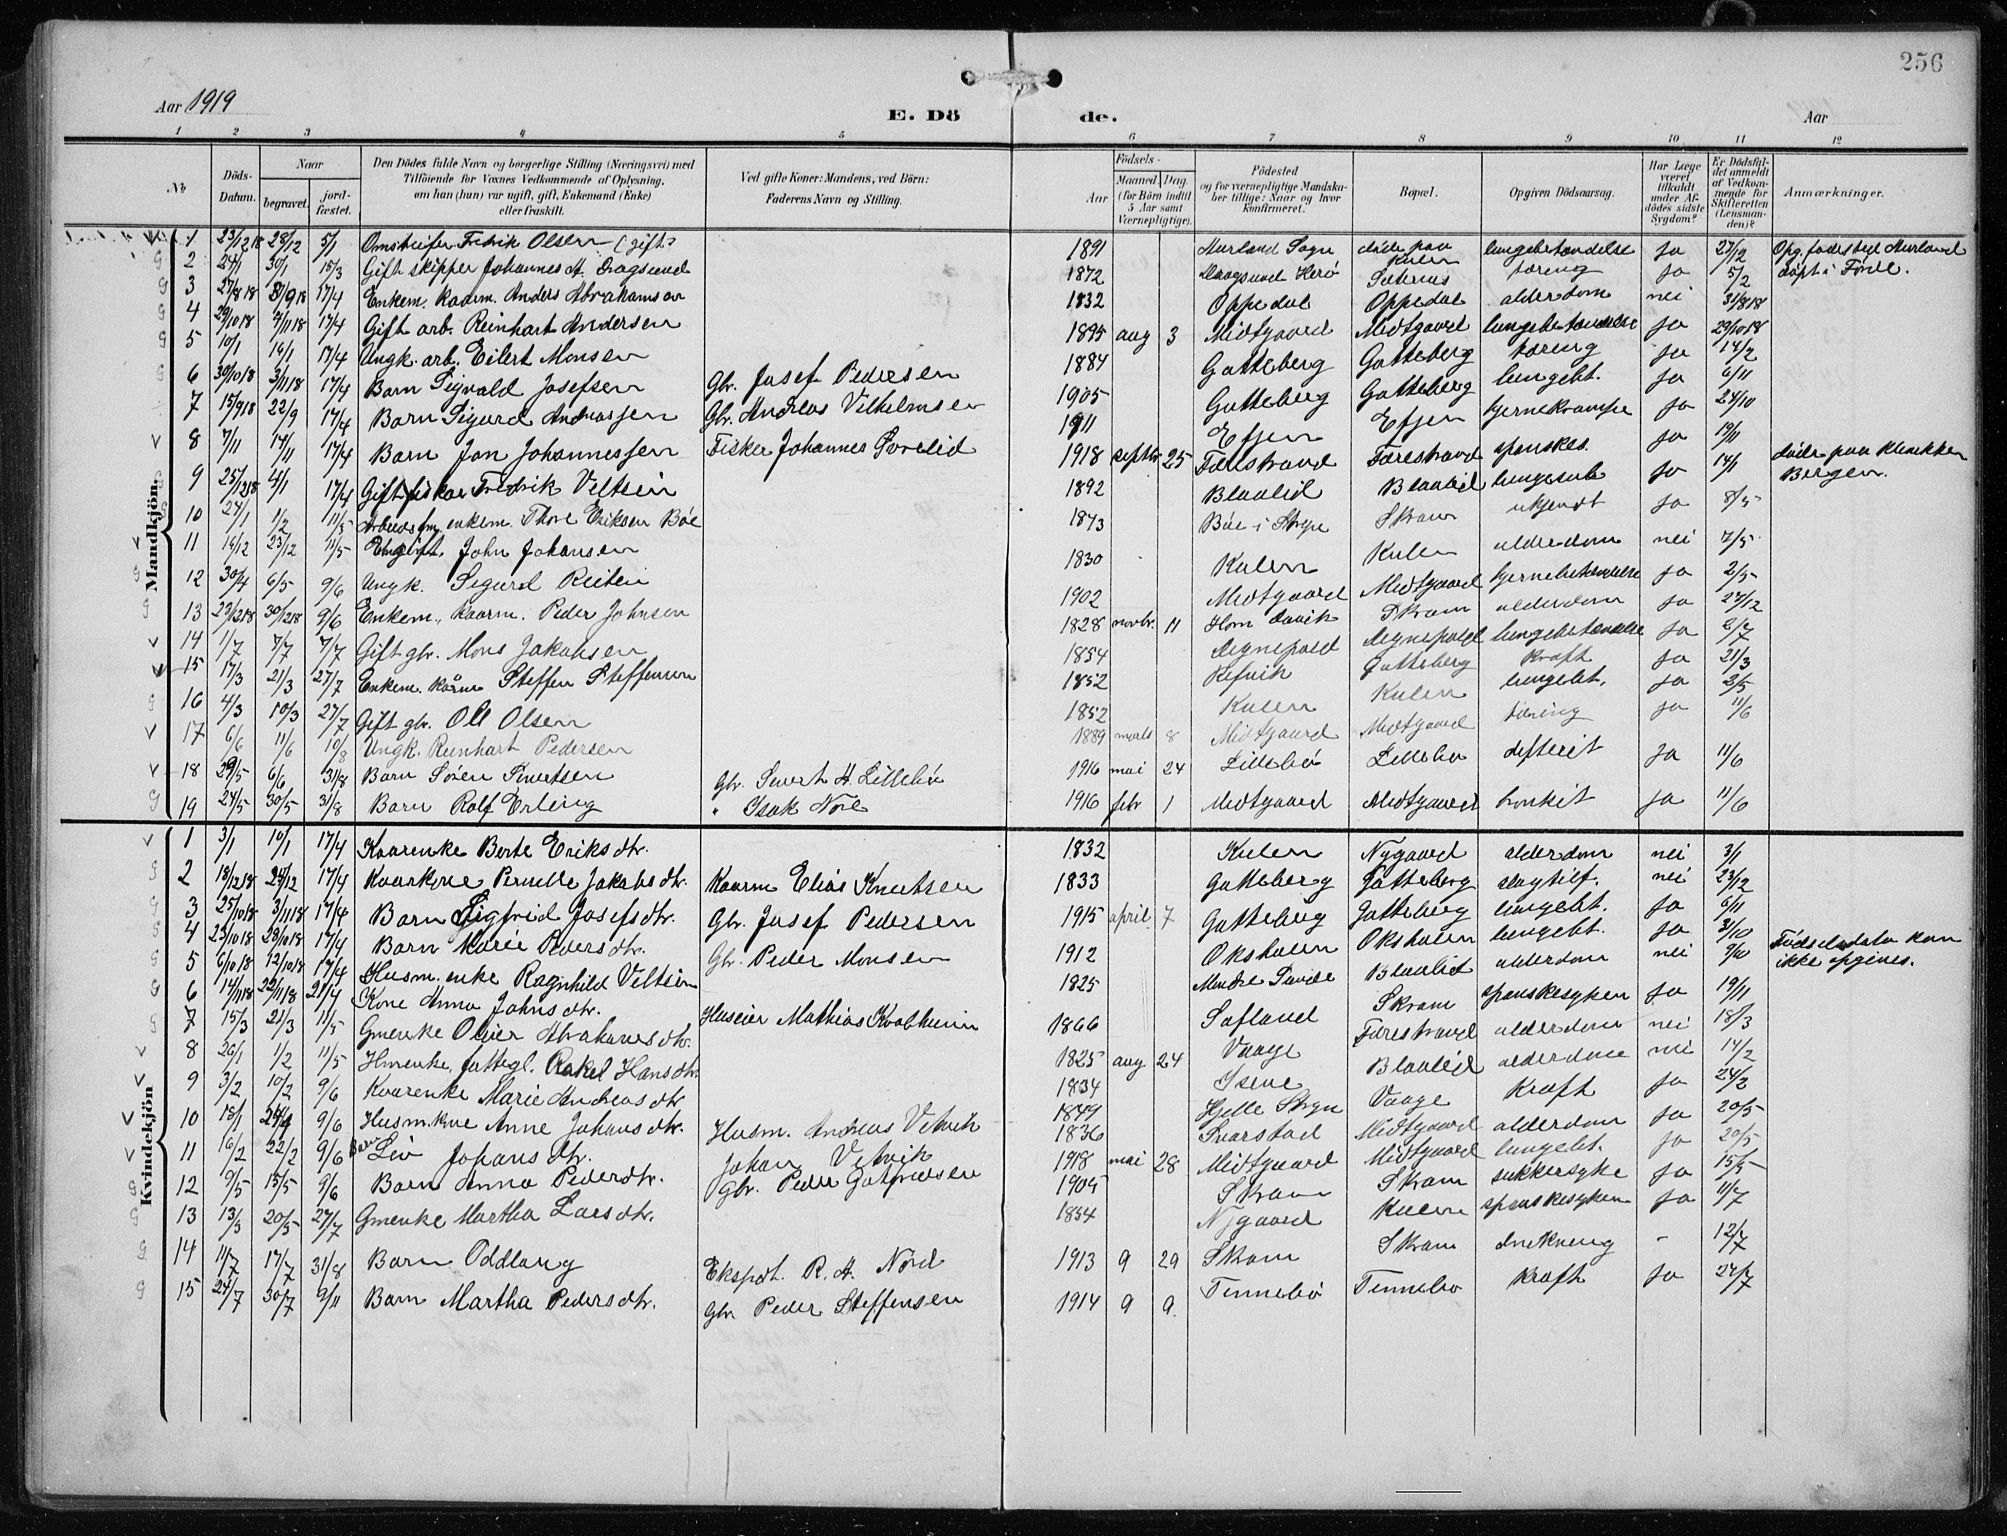 256
Aar 1919
E. Dö de.
Aar
1 2 3 4 5 6 7 8 9 10 11 12
No
Döds-Datum.
Naar
begravet.
jord-fæstet.
Den Dödes fulde Navn og borgerlige Stilling (Næringsvei) med Tilföiende for Voxnes Vedkommende af Oplysning, om han (hun) var ugift, gift, Enkemand (Enke) eller fraskilt.
Ved gifte Koner: Mandens, ved Börn: Faderens Navn og Stilling.
Födsels-
Aar
Maaned. Dag.
(for Börn indtil 5 Aar samt Værnepligtige).
Födested og for værnepligtige Mandskaber tillige: Naar og hvor Konfirmeret.
Bopæl.
Opgiven Dödsaarsag.
Har Læge været tilkaldt under Afdödes sidste Sygdom?
Er Dödsfaldet anmeldt af Vedkommende for Skifteretten (Lensmanden)?
Anmærkninger.
Mandkjön.
1 23/12 18 28/12 5/1 Fredrik Olsen (gift) 1891 Hurland Sogn døde paa Kulen lungebetændelse ja 27/2 Opg. fødested Hurland døpt i Førde.
2 24/1 30/1 15/3 Gift skipper Johannes A. Dragsund 1872 Dragsund Herø tæring ja 5/2
3 27/8 18 31/9 18 17/4 Enkem. kaarm. Anders Abrahamsen 1832 Oppedal Oppedal alderdom nei 31/8 18
4 29/10 18 7/11 18 17/4 Gift arb. Reinhart Andersen 1895 aug 3 Midtgaard Midtgaard lungebetændelse ja 29/10 18
5 10/1 16/1 17/4 Ungk. arb. Eilert Monsen 1884 Gatteberg Gatteberg tæring ja 14/2
6 30/10 18 3/11 18 17/4 Barn Sigvald Josefsen Gbr. Josef Pedersen 1905 Gatteberg Gatteberg lungebt. ja 6/11
7 15/9 18 22/9 17/4 Barn Sigurd Andreassen Gbr. Andreas Vilhelmsen 1911 Efjen Efjen hjernekrampe ja 24/10
8 7/11 14/11 17/4 Barn Jon Johannessen Fisker Johannes Sorelid 1918 septbr 25 Førestrand Førestrand spanskes. ja 19/11 døde paa klinikken Bergen.
9 25/12 18 4/1 17/4 Gift fisker Fredrik Veltsin 1892 Blaalid Blaalid ja 14/1
10 24/1 1/2 11/5 enkem. Thore Eriksen Bøe 1843 Bøe i Stryn Skram ukjendt ja 8/5
11 14/12 23/12 11/5 John Johansen 1830 Kulen Kulen alderdom nei 7/5
12 30/4 6/5 9/6 Ungk. Sigurd Reiten 1902 Midtgaard Midtgaard hjernebetændelse ja 2/5
13 22/12 18 30/12 18 9/6 Enkem. kaarm. Peder Johnsen 1828 novbr. 11 Horn Davik Skram alderdom ja 27/12
14 1/7 7/7 7/7 Gift gbr. Mons Jakobsen 1854 Degnepold Degnepold lungebetændelse ja 2/7
15 17/3 21/3 27/7 Enkem. kårm Steffen Steffensen 1852 Refvik Gatteberg kræft ja 21/3
16 4/3 10/3 27/7 Gift gbr. Ole Olsen 1852 Kulen Kulen lungebt. ja 2/5
17 6/6 11/6 10/8 Ungk. Reinhart Pedersen 1889 marts 8 Midtgaard Midtgaard tæring ja 11/6
18 29/5 6/6 31/8 Barn Søren Sivertsen Gbr. Sivert A. Lillebø 1916 mai 24 Lillebø Lillebø difterit ja 11/6
19 24/5 30/5 31/8 Barn Rolf Erling " Isak Nore 1916 febr 1 Midtgaard Midtgaard bronkit ja 11/6
Kvindekjön
1 3/1 10/1 17/4 Kaarenke Berte Eriksdtr. 1832 Kulen Nygaard alderdom nei 3/1
2 18/12 18 24/12 17/4 Kaarkone Pernille Jakobsdtr. Kaarm Elias Knutsen 1833 Gatteberg Gatteberg slagtilf. nei 23/12
3 25/10 18 3/11 18 17/4 Barn Sigfrid Josefsdtr. Gbr. Josef Pedersen 1915 april 7 Gatteberg Gatteberg lungebt. ja 6/11
4 23/10 18 29/10 18 17/4 Barn Marie Pedersdtr. Gbr. Peder Monsen 1912 Oksholen Oksholen lungebt. ja 31/10
5 6/10 18 12/10 18 17/4 Husm. enke Ragnhild Veltsin 1825 Blaalid alderdom nei 9/10 Fødselsdato kan ikke opgives.
6 14/11 18 22/11 18 21/4 Kone Anna Johnsdtr. Huseier Mathias Kvalheim 1866 Sæfland Skram spanskesyken ja 19/11
7 15/3 21/3 11/5 Gmenke Oline Abrahamsdtr. 1825 aug 24 Vaage Førestrand alderdom nei 18/3
8 26/1 1/2 11/5 Hmenke, fattigl. Rakel Hansdtr. 1834 Isene Blaalid alderdom nei 14/2
9 3/2 10/2 9/6 Kaarenke Marie Andreasdtr 1849 Hjelle Stryn Vaage kræft ja 24/3
10 18/1 24/1 9/6 Husm.kone Anne Johansdtr. Husm. Andreas Vetvik 1836 Svarstad Midtgaard alderdom ja 20/5
11 16/2 22/2 9/6 Barn Liv Johansdtr. Johan Vetvik 1918 mai 28 Midtgaard Midtgaard lungebt. ja 20/5
12 9/5 15/5 9/6 Barn Anna Pedersdtr. Gbr. Peder Gotfredsen 1905 Skram Skram sukkersyke ja 15/5
13 13/5 20/5 27/7 Gmenke Martha Larsdtr. 1854 Nygaard Kulen spanskesyken ja 11/7
14 11/7 17/7 31/8 Barn Oddlaug Ekspdt. R. A. Nord 1913 9 29 Skram Skram drukning - 12/7
15 24/7 30/7 9/11 Barn Martha Pedersdtr. Gbr Peder Steffensen 1914 9 9 Tennebø Tennebø kræft ja 27/7